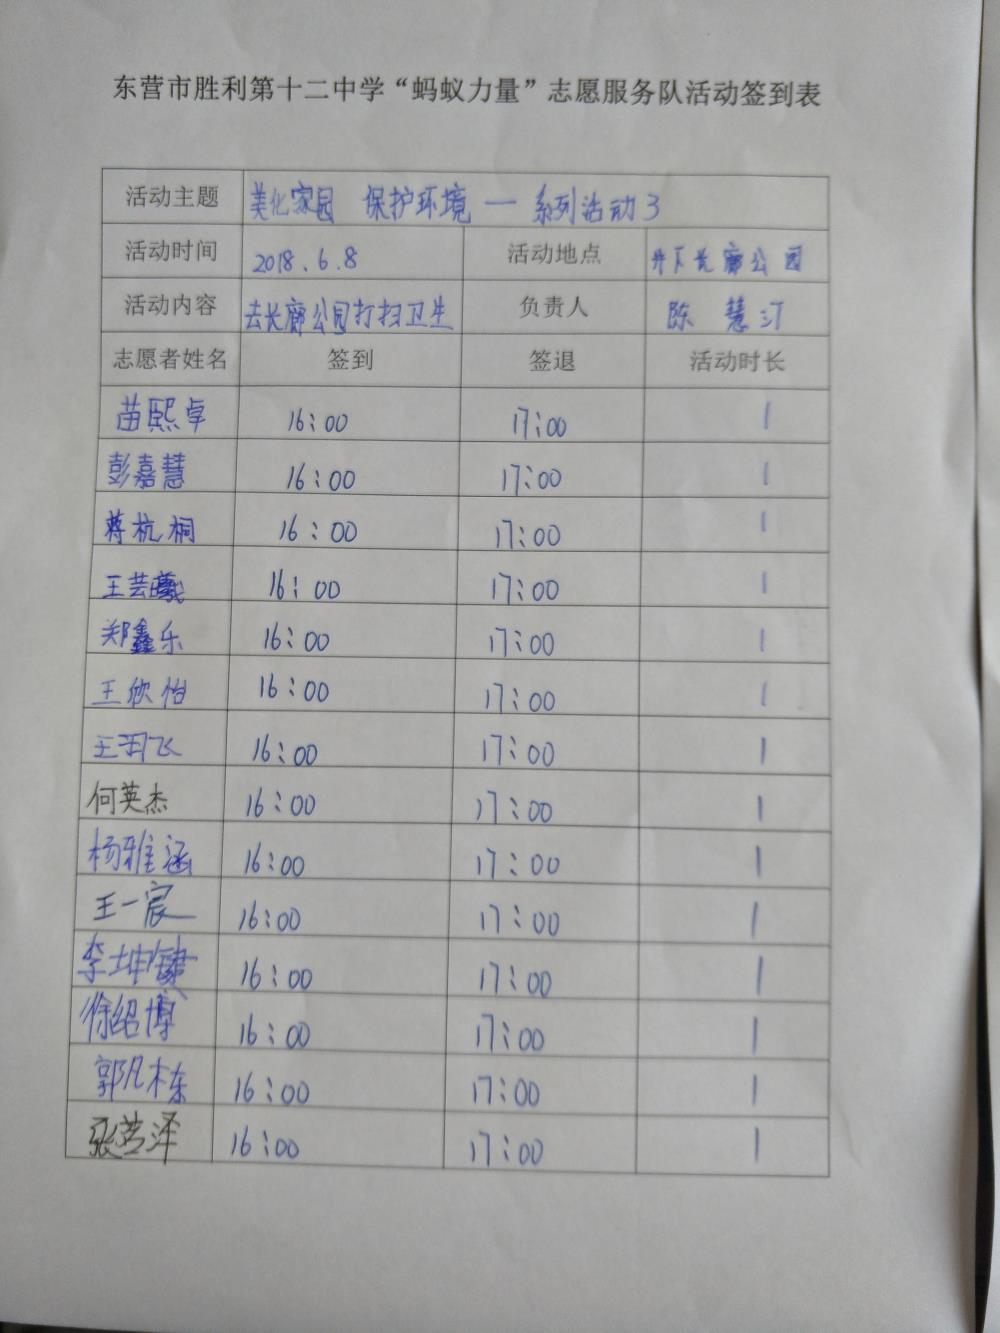 东营市胜利第十二中学“蚂蚁力量”志愿服务队活动签到表
活动主题 美化家园 保护环境 一 系列活动3
活动时间 2018.6.8 活动地点 井下长廊公园
活动内容 去长廊公园打扫卫生 负责人 陈慧汀
志愿者姓名 签到 签退 活动时长
苗熙卓 16:00 17:00 1
彭嘉慧 16:00 17:00 1
蒋杭桐 16:00 17:00 1
王芸曦 16:00 17:00 1
郑鑫乐 16:00 17:00 1
王欣怡 16:00 17:00 1
王羽飞 16:00 17:00 1
何英杰 16:00 17:00 1
杨雅涵 16:00 17:00 1
王一宸 16:00 17:00 1
李坤 16:00 17:00 1
徐绍博 16:00 17:00 1
郭凡栋 16:00 17:00 1
张艺泽 16:00 17:00 1